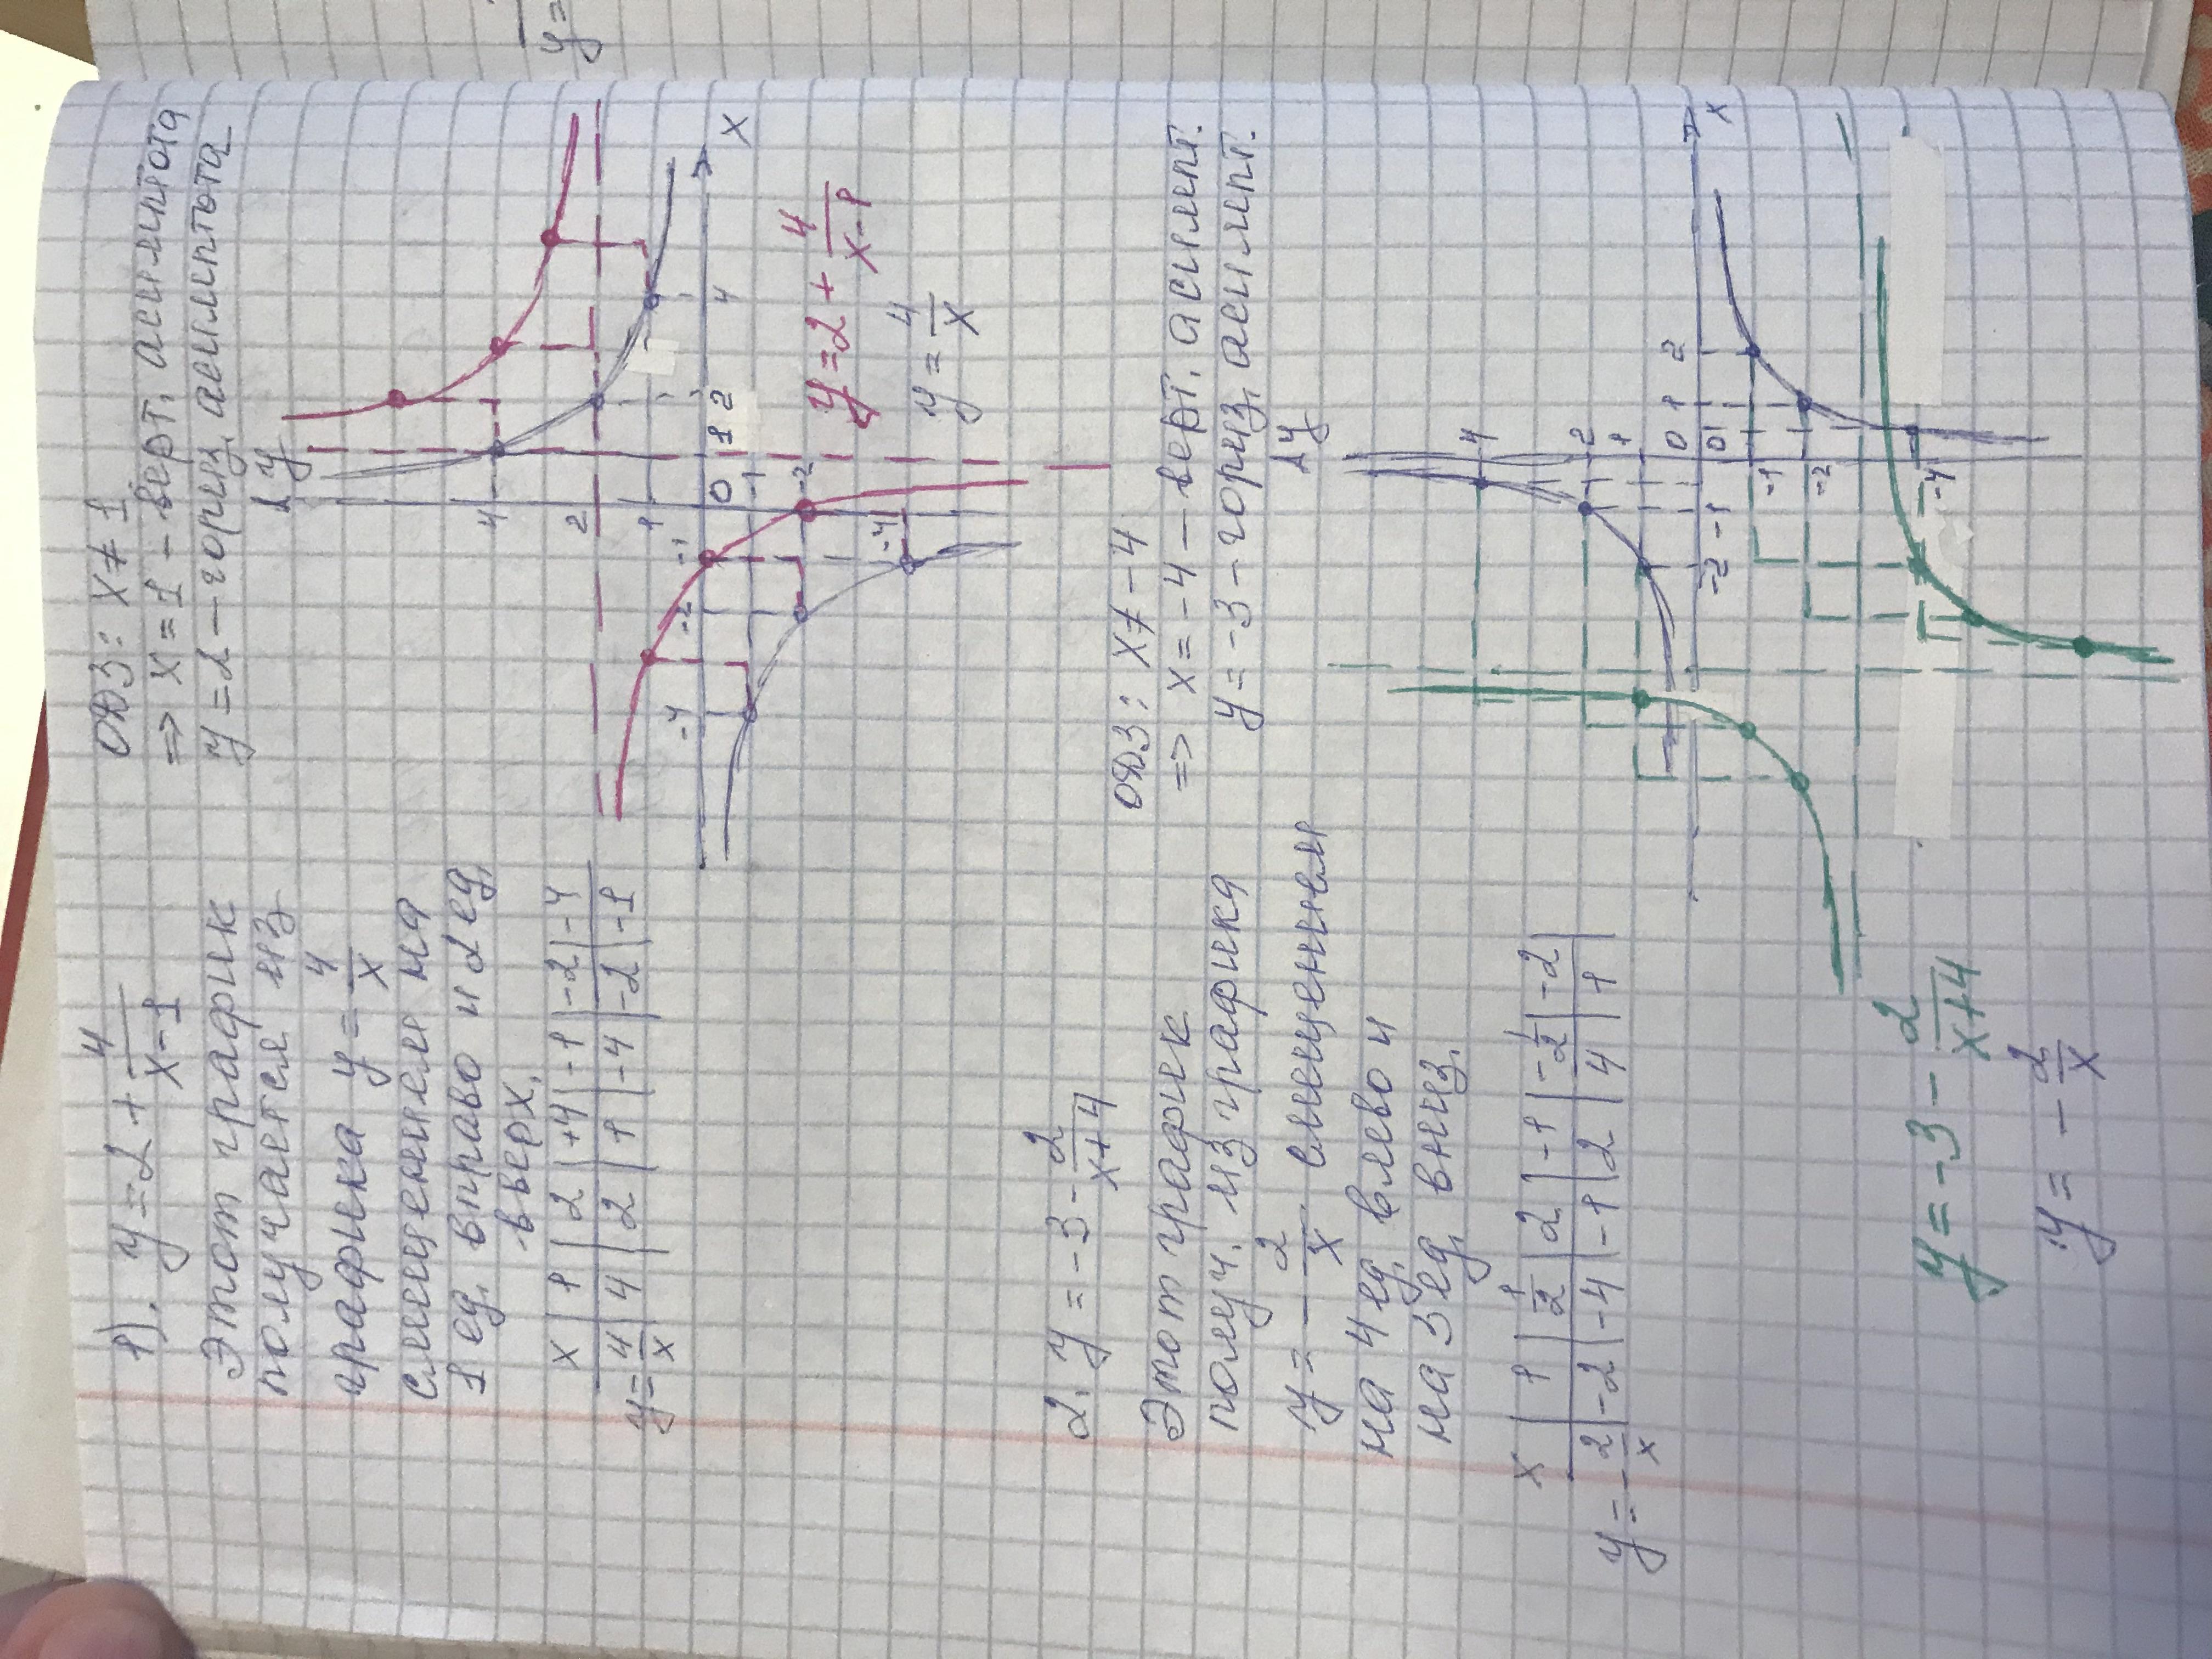 1). y = 2 + 4/(x-1)
ОДЗ: x ≠ 1
=> x = 1 - верт. асимптота
y = 2 - гориз. асимптота
Этот график
получается из
графика y = 4/x
смещением на
1 ед. вправо и 2 ед.
вверх.
x | 1 | 2 | +4 | -1 | -2 | -4
y = 4/x | 4 | 2 | 1 | -4 | -2 | -1
y
4
2
1
-4 -2 -1 0 1 2 4 x
-1
-2
-4
y = 2 + 4/(x-1)
y = 4/x
2. y = -3 - 2/(x+4)
ОДЗ: x ≠ -4
=> x = -4 - верт. асимпт.
y = -3 - гориз. асимпт.
Этот график
получ. из графика
y = - 2/x смещением
на 4 ед. влево и
на 3 ед. вниз.
x | 1 | 1/2 | 2 | -1 | -1/2 | -2 |
y = - 2/x | -2 | -4 | -1 | 2 | 4 | 1 |
y
4
2
1
0
-2 -1 0 1 2 x
-1
-2
-4
y = -3 - 2/(x+4)
y = - 2/x
y =